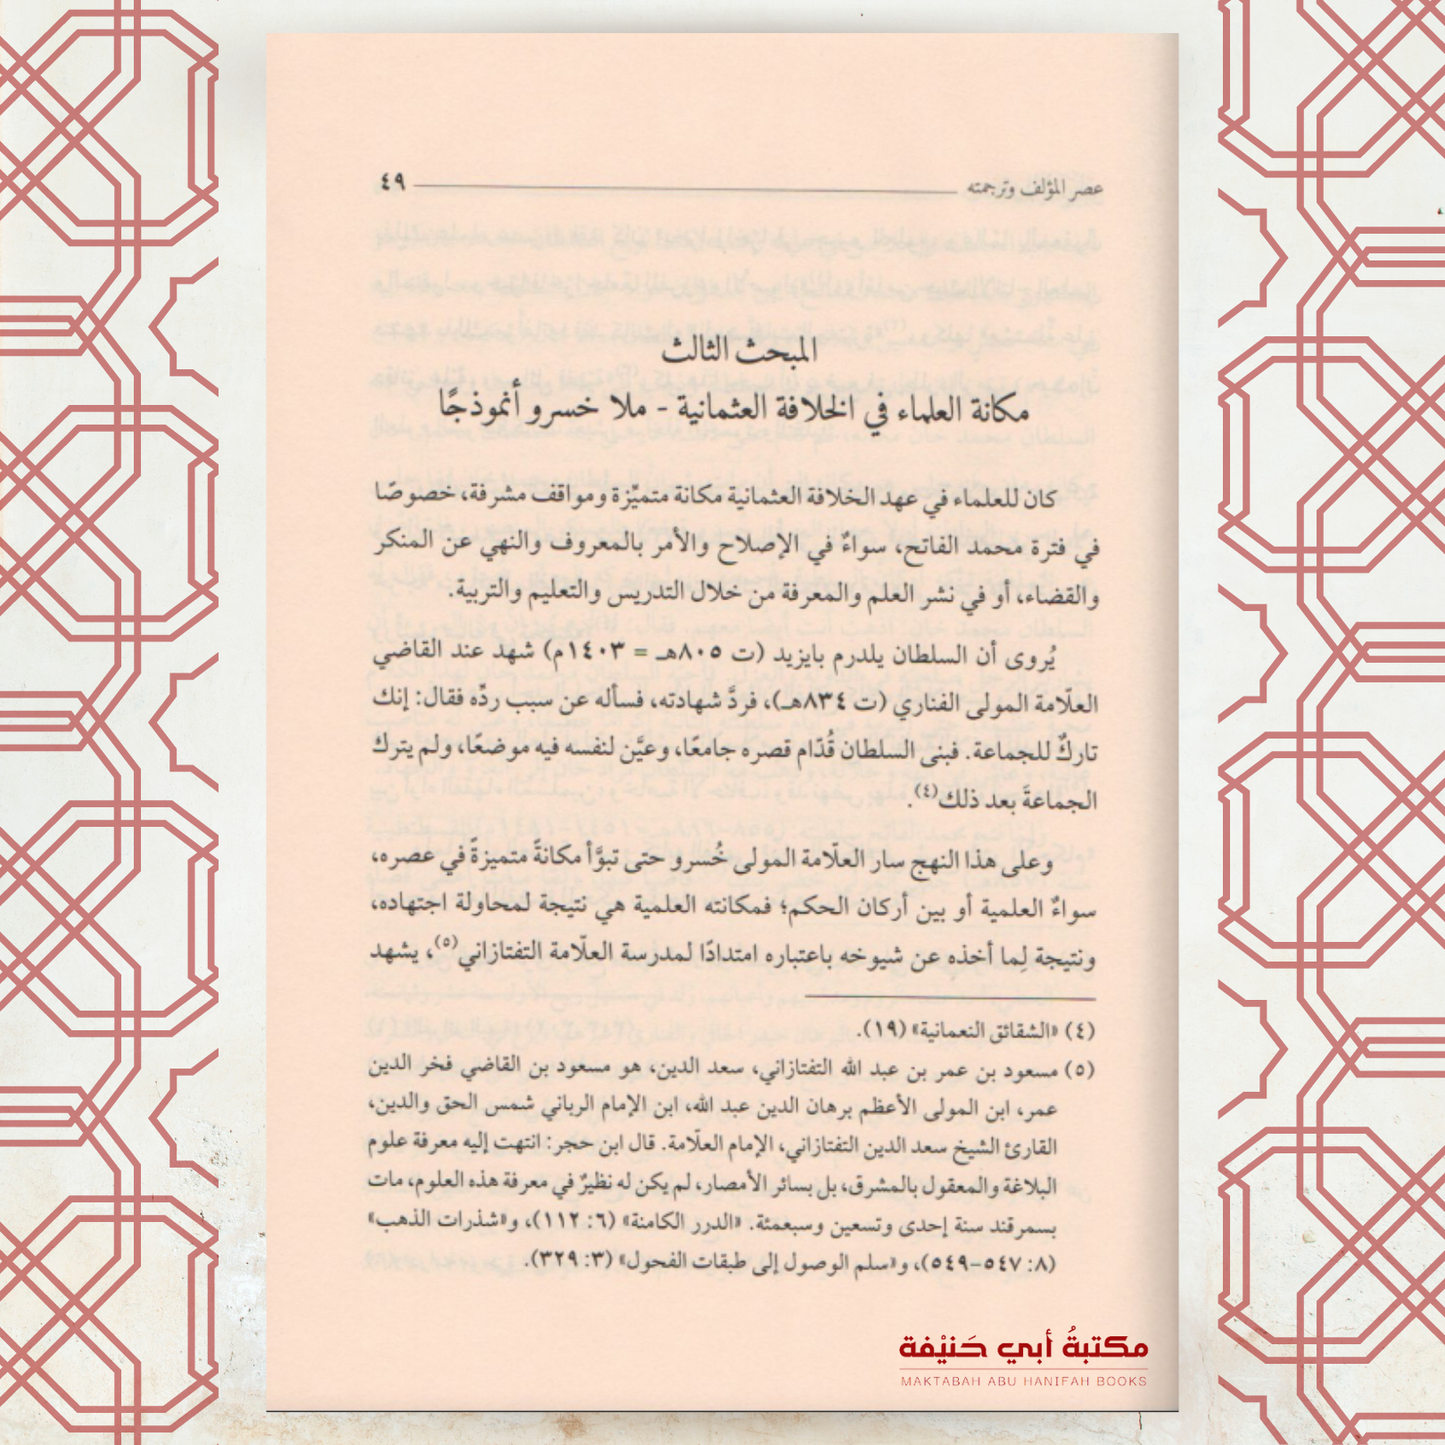 عصر المؤلف وترجمته ٤٩
المبحث الثالث
مكانة العلماء في الخلافة العثمانية - ملا خسرو أنموذجًا
كان للعلماء في عهد الخلافة العثمانية مكانة متميِّزة ومواقف مشرفة، خصوصًا
في فترة محمد الفاتح، سواءٌ في الإصلاح والأمر بالمعروف والنهي عن المنكر
والقضاء، أو في نشر العلم والمعرفة من خلال التدريس والتعليم والتربية.
يُروى أن السلطان يلدرم بايزيد (ت ٨٠٥هـ = ١٤٠٣م) شهد عند القاضي
العلّامة المولى الفناري (ت ٨٣٤هـ)، فردَّ شهادته، فسأله عن سبب ردِّه فقال: إنك
تاركٌ للجماعة. فبنى السلطان قُدّام قصره جامعًا، وعيَّن لنفسه فيه موضعًا، ولم يترك
الجماعةَ بعد ذلك(٤).
وعلى هذا النهج سار العلّامة المولى خُسرو حتى تبوَّأ مكانةً متميزةً في عصره،
سواءٌ العلمية أو بين أركان الحكم؛ فمكانته العلمية هي نتيجة لمحاولة اجتهاده،
ونتيجة لِما أخذه عن شيوخه باعتباره امتدادًا لمدرسة العلّامة التفتازاني(٥)، يشهد
(٤) «الشقائق النعمانية» (١٩).
(٥) مسعود بن عمر بن عبد الله التفتازاني، سعد الدين، هو مسعود بن القاضي فخر الدين
عمر، ابن المولى الأعظم برهان الدين عبد الله، ابن الإمام الرباني شمس الحق والدين،
القارئ الشيخ سعد الدين التفتازاني، الإمام العلّامة. قال ابن حجر: انتهت إليه معرفة علوم
البلاغة والمعقول بالمشرق، بل بسائر الأمصار، لم يكن له نظيرٌ في معرفة هذه العلوم، مات
بسمرقند سنة إحدى وتسعين وسبعمئة. «الدرر الكامنة» (٦: ١١٢)، و«شذرات الذهب»
(٨: ٥٤٧-٥٤٩)، و«سلم الوصول إلى طبقات الفحول» (٣: ٣٢٩).
مكتبةُ أبي حَنيْفة
MAKTABAH ABU HANIFAH BOOKS